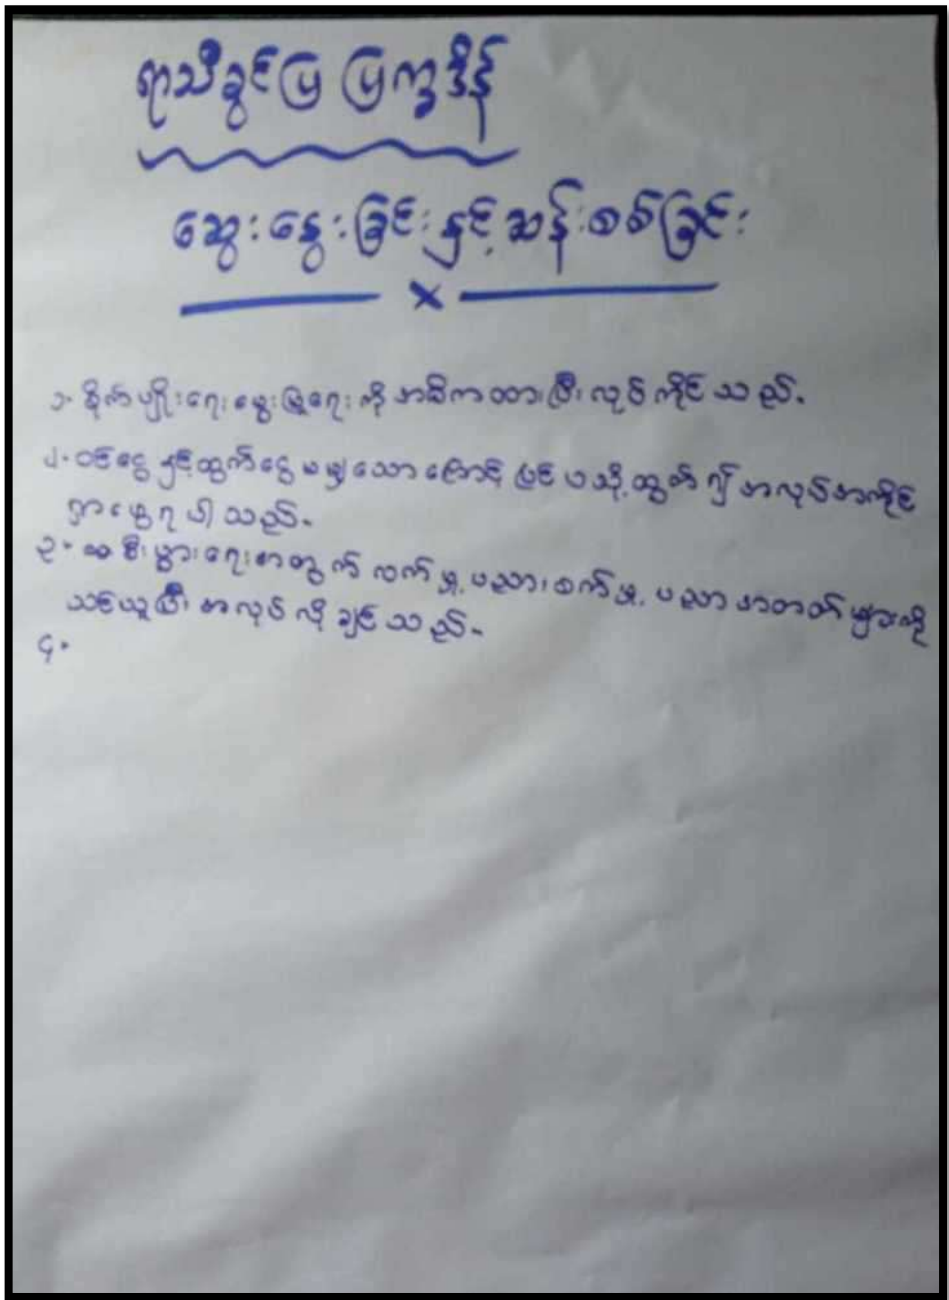 ရာသီခွင်ပြ ပြက္ခဒိန်
ဆွေးနွေးခြင်းနှင့်ဆန်းစစ်ခြင်း
x
၁- စိုက်ပျိုးရေး မွေးမြူရေးကို အဓိကထားပြီး လုပ်ကိုင်သည်။
၂- ဝင်ငွေနှင့်ထွက်ငွေ မမျှသောကြောင့် ပြင်ပသို့ထွက်၍ အလုပ်အကိုင်
ရှာဖွေရပါသည်။
၃- ဆ စီးပွားရေးအတွက် လက်မှု့ပညာ၊ စက်မှု့ ပညာအတတ်များကို
သင်ယူပြီး အလုပ်လိုချင်သည်။
၄-